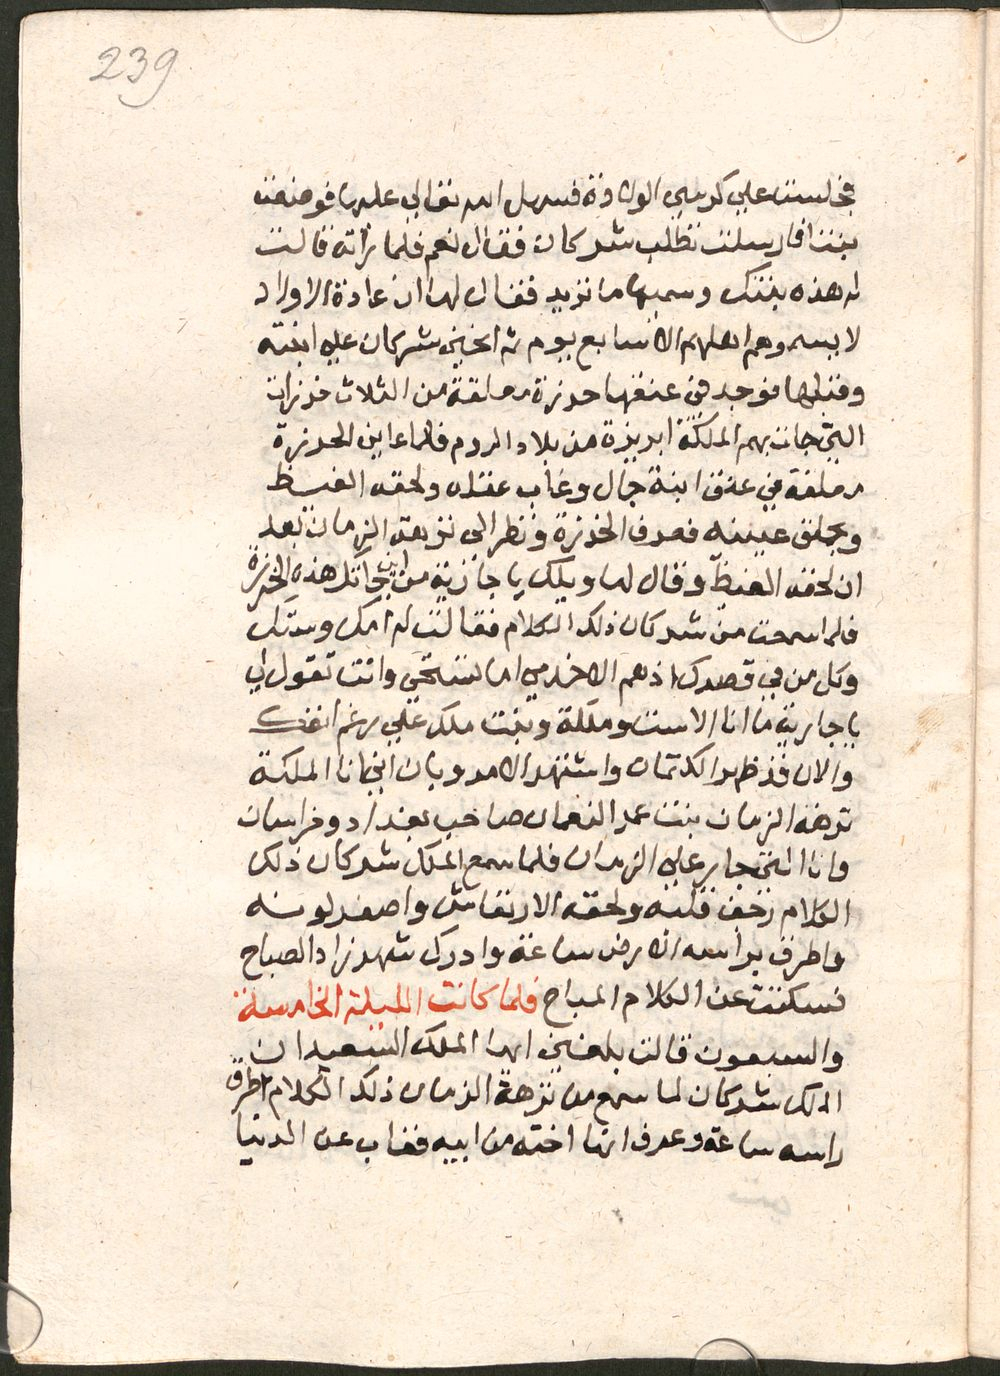 239
فجلست علي كرسي الولادة فسهل الله تعالي عليها فوضعت
بنتا فارسلت تطلب شركان فقال نعم فلما راته قالت
له هذه بنتك وسميها ما تريد فقال لها ان عادة الاولاد
لا يسموهم اهلهم الا سابع يوم ثم انحني شركان علي ابنته
وقبلها فوجد في عنقها خرزة معلقة من الثلاث خرزات
التي جات بهم الملكة ابريزة من بلاد الروم فلما عاين الخرزة
معلقة في عنق ابنة جال وغاب عقله ولحقه الغيظ
وبحلق عينيه فعرف الخرزة ونظر الي نزهة الزمان بعد
ان لحقه الغيظ وقال لها ويلك يا جارية من اين جاتك هذه الخرزة
فلما سمعت من شركان ذلك الكلام فقالت له امك وستك
وكل من في قصرك اذهم الا خدمي اما تستحي وانت تقول لي
يا جارية ما انا الا ست وملكة وبنت ملك علي رغم انفك
والان قد ظهر الكتمان واشتهر الامر وبان انني انا الملكة
نزهة الزمان بنت عمر النعمان صاحب بغداد وخراسان
وانا التي جار علي الزمان فلما سمع الملك شركان ذلك
الكلام رجف قلبه ولحقه الارتعاش واصفر لونه
واطرق براسه الارض ساعة وادرك شهرزاد الصباح
فسكتت عن الكلام المباح فلما كانت الليلة الخامسة
والسبعون قالت بلغني ايها الملك السعيد ان
الملك شركان لما سمع من نزهة الزمان ذلك الكلام اطرق
راسه ساعة وعرف انها اخته من ابيه فغاب عن الدنيا